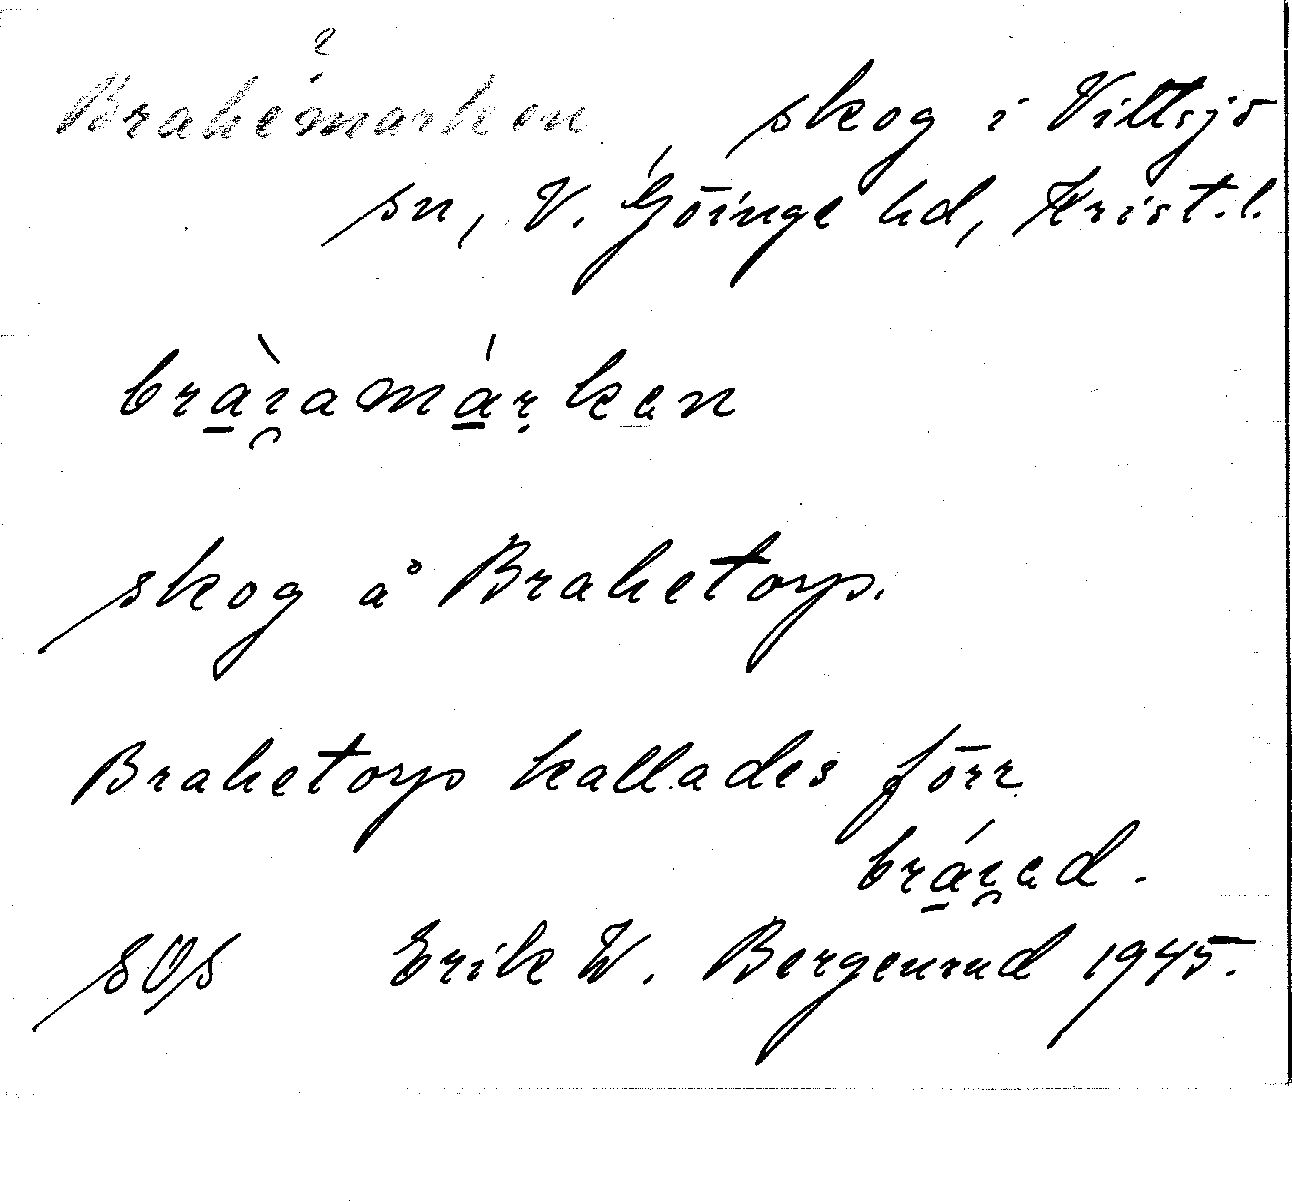 ?
Brahemarken skog i Vittsjö
sn, V. Göinge hd, Krist.l.
bràiamárken
skog å Brahetorp.
Brahetorp kallades förr
bráied.
SOS Erik W. Bergenrud 1945.